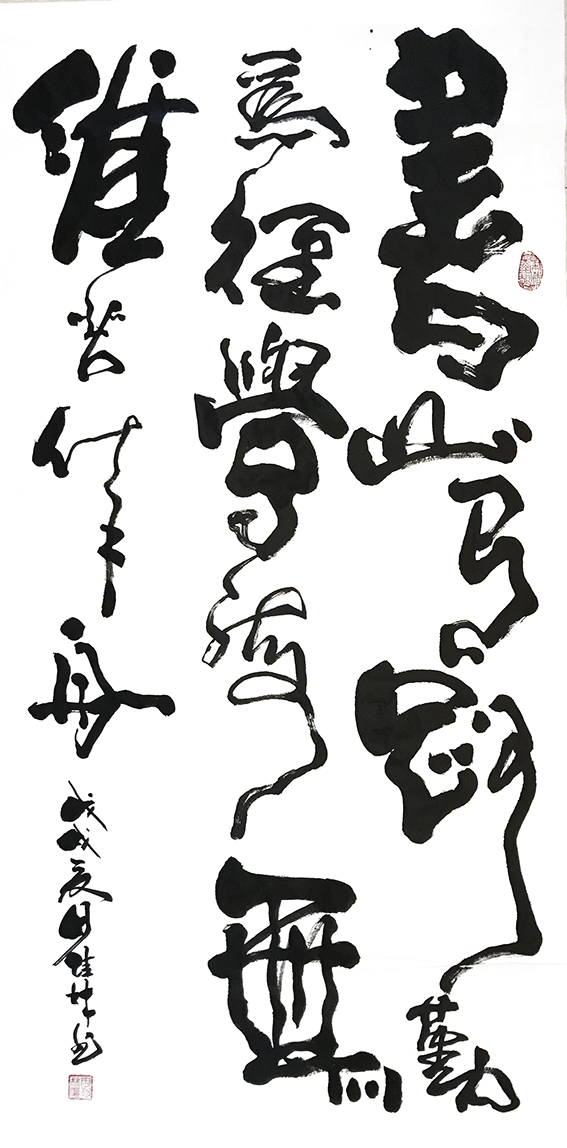 書山有路勤
為徑學海無
涯苦作舟
戊戌夏日佳坤書